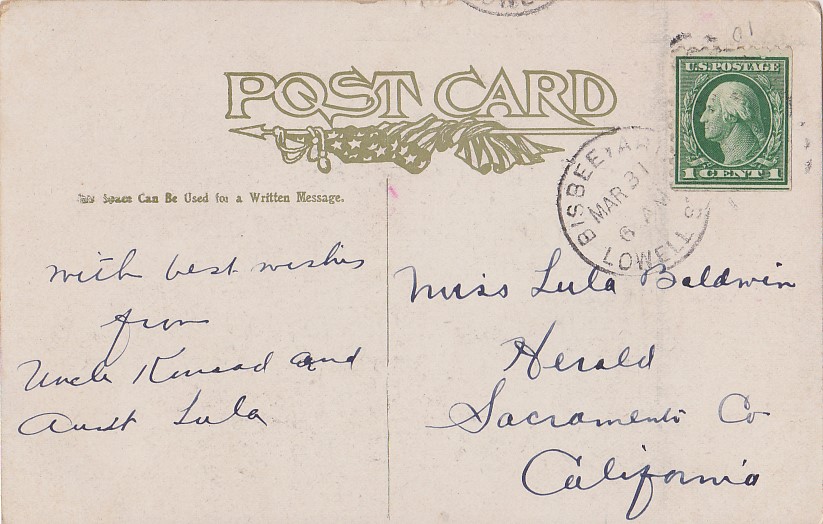 POST CARD
U.S. POSTAGE
1 CENT 1
BISBEE, AR
MAR 31
6 AM
LOWELL S
Space Can Be Used for a Written Message.
with best wishes
from
Uncle Konrad and
Aunt Lula
Miss Lula Baldwin
Herald
Sacramento Co
California